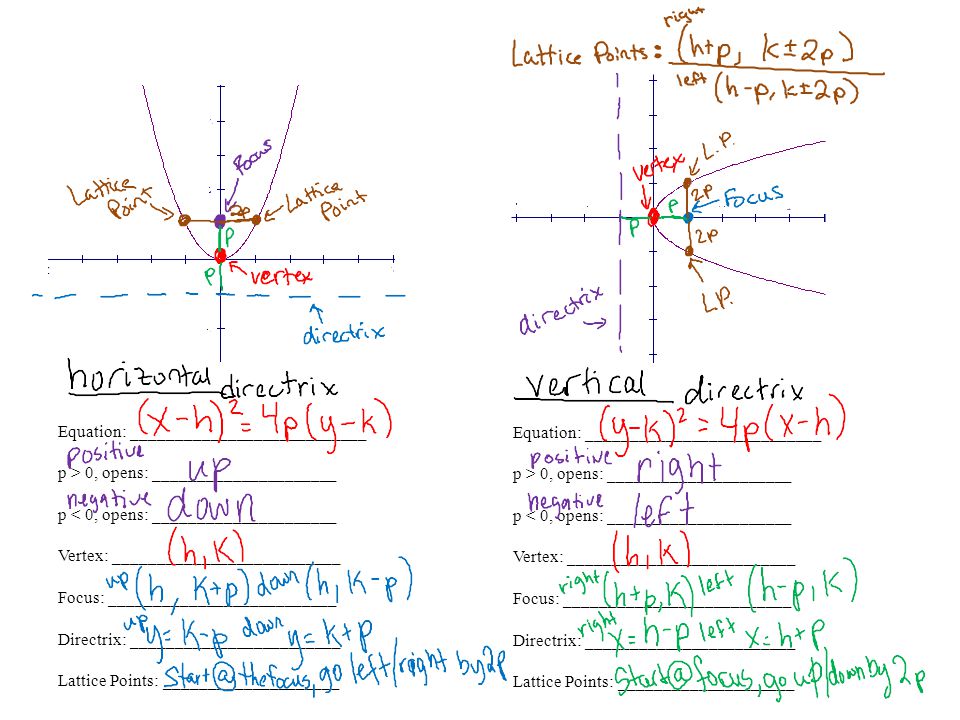 Lattice Points: right (h+p, k±2p)
left (h-p, k±2p)
Focus
Lattice Point
2p
Lattice Point
p
p
vertex
directrix
vertex
L.P.
2p
p
Focus
p
2p
L.P.
directrix
horizontal directrix
Equation: (x-h)² = 4p(y-k)
positive
p > 0, opens: up
negative
p < 0, opens: down
Vertex: (h, k)
Focus: up (h, k+p) down (h, k-p)
Directrix: up y= k-p down y= k+p
Lattice Points: Start @ the focus, go left/right by 2p
vertical directrix
Equation: (y-k)² = 4p(x-h)
positive
p > 0, opens: right
negative
p < 0, opens: left
Vertex: (h, k)
Focus: right (h+p, k) left (h-p, k)
Directrix: right x= h-p left x= h+p
Lattice Points: Start @ focus, go up/down by 2p